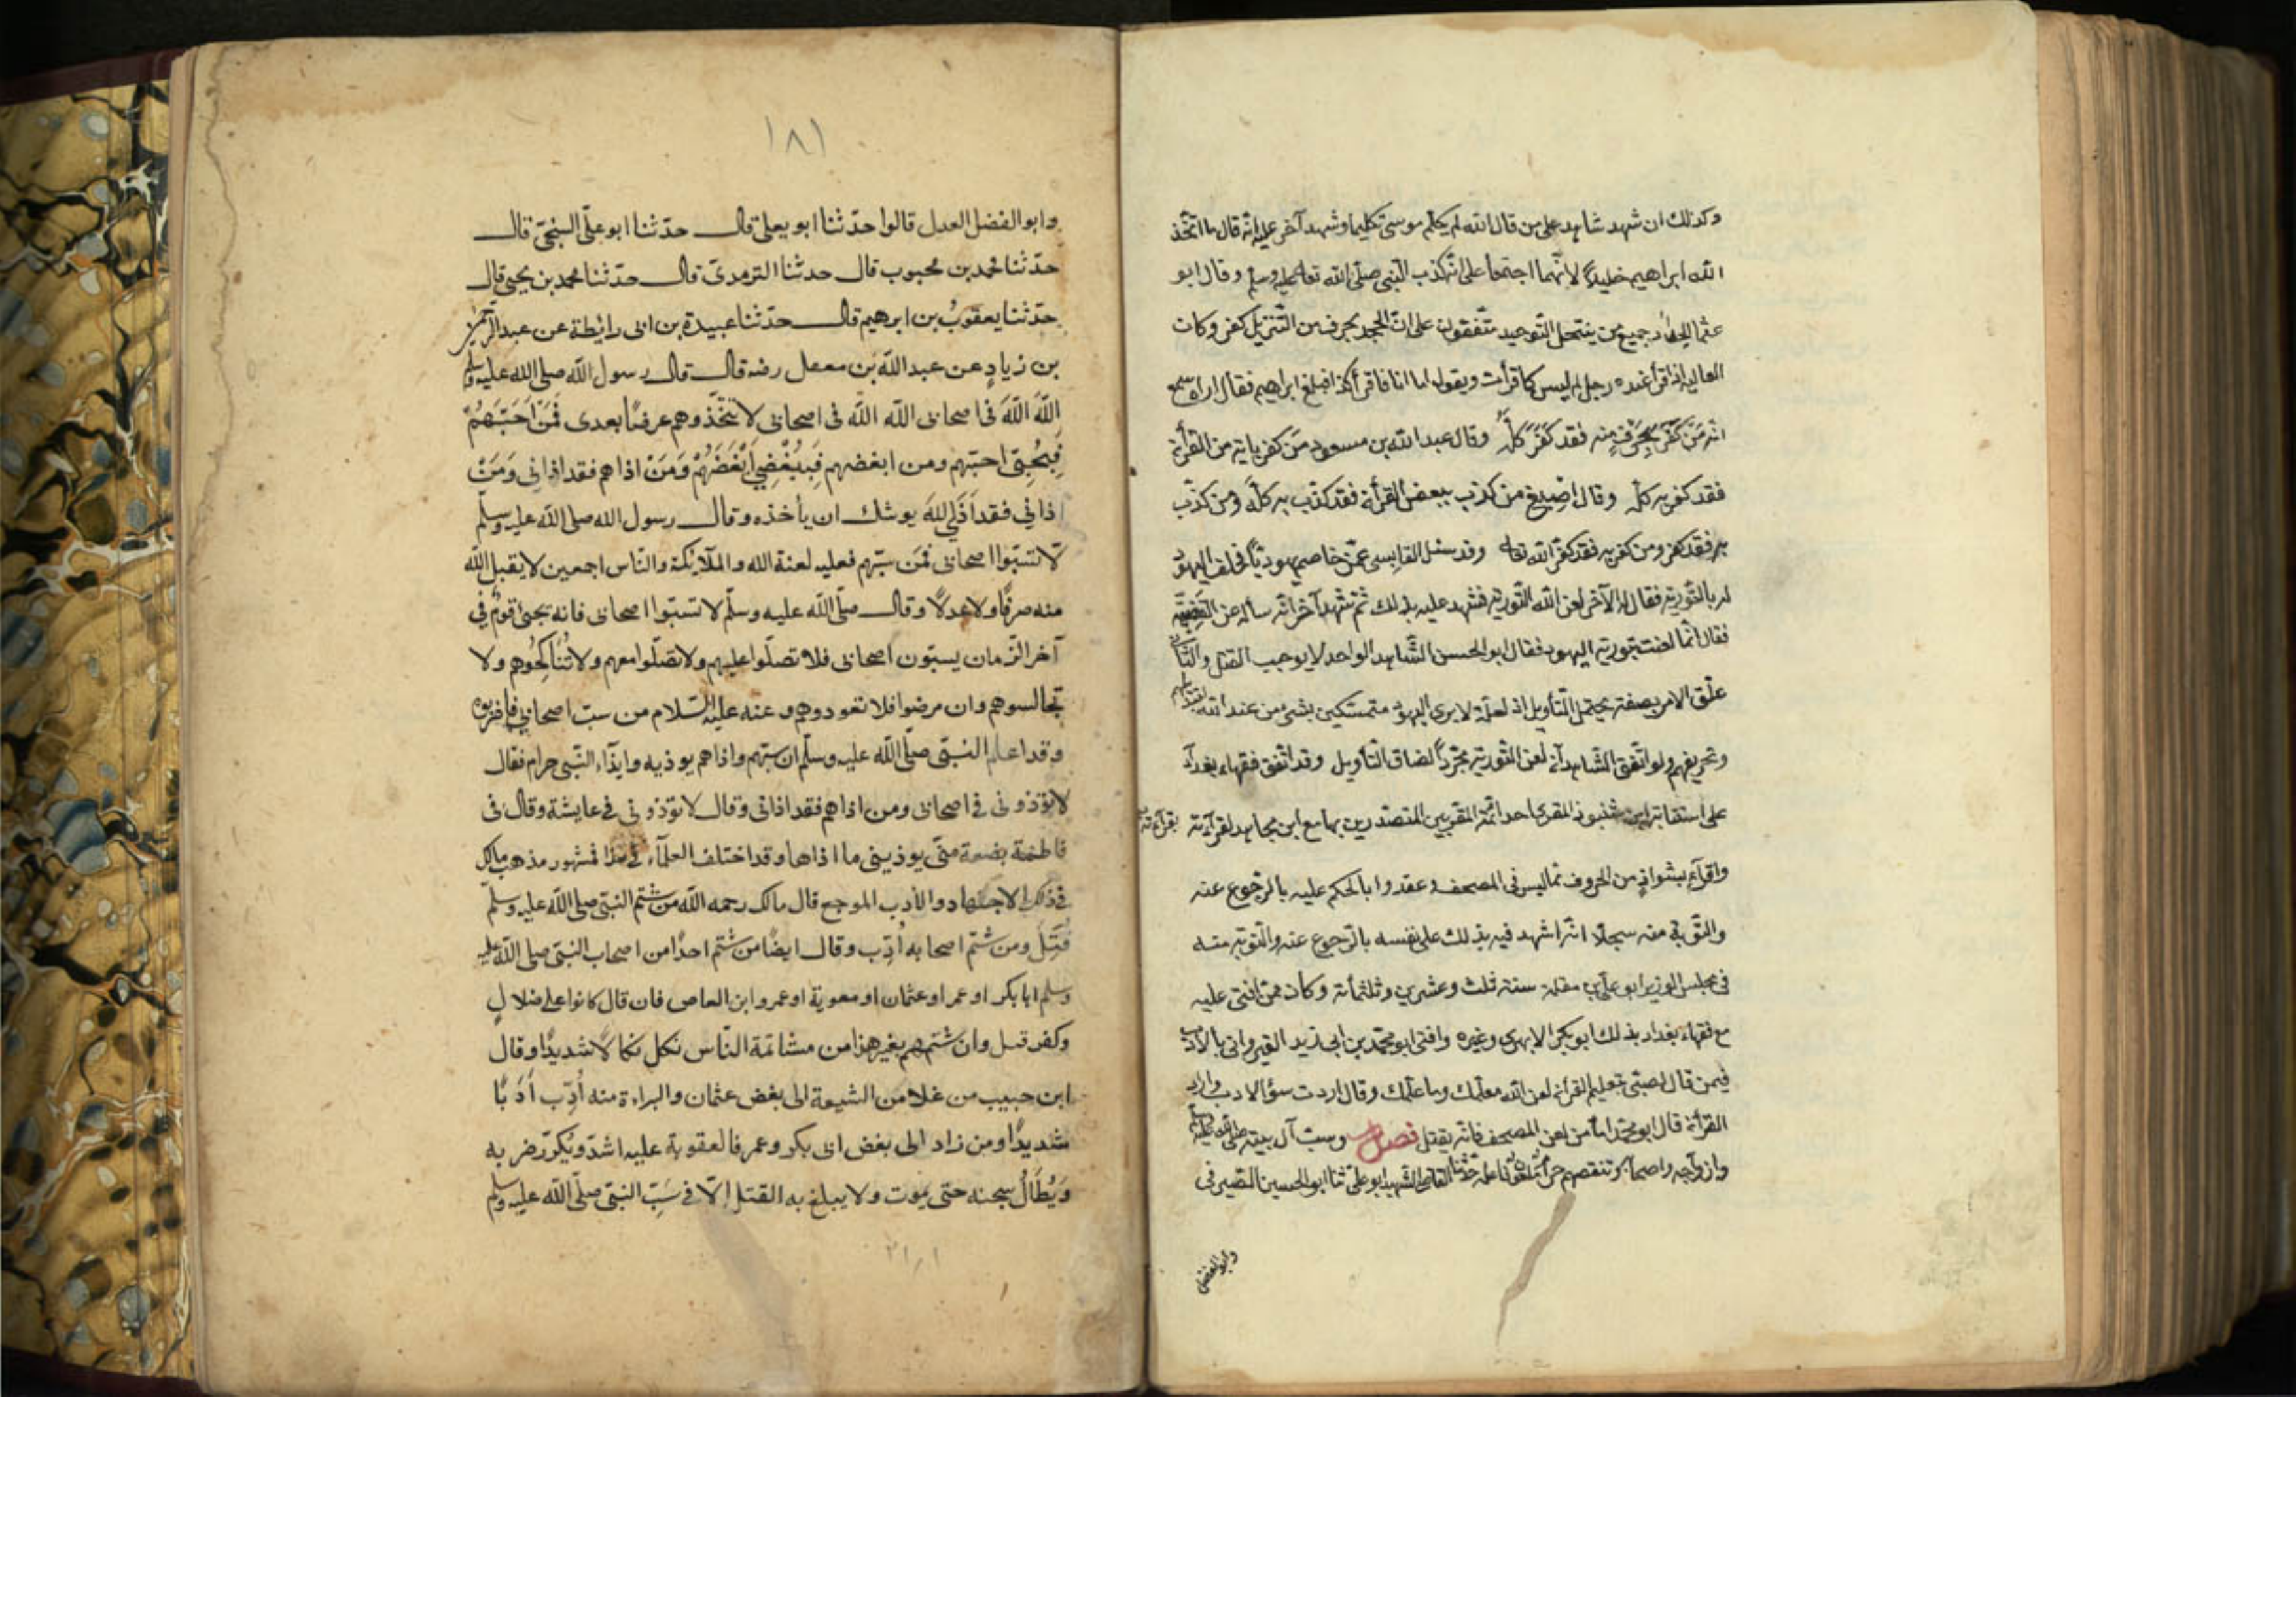 وكذلك ان شهد شاهد على من قال ان الله لم يكلم موسى تكليما وشهد آخر عليه انه قال ما اتخذ
الله ابراهيم خليلا لانهما اجتمعا على انه كذب النبي صلى الله تعالى عليه وسلم وقال ابو
عثمان الحداد جميع من ينتحل التوحيد متفقون على ان الجحد بحرف من التنزيل كفر وكان
العالية اذا قرأ عنده رجل لم يقل ليس كما قرأت ويقول اما انا فاقرأ كذا فبلغ ابراهيم فقال اراه سمع
انه مَن كَفَرَ بحرفٍ منه فقد كَفَرَ كلّه وقال عبد الله بن مسعود من كفر باية من القرأن
فقد كفر به كله وقال اصبغ من كذب ببعض القرأن فقد كذب به كله ومن كذب
به فقد كفر ومن كفر به فقد كفر الله تعالى وقد سئل القابسي عمن خاصم يهوديا فحلف اليهودي
له بالتورية فقال له الآخر لعن الله التورية فشهد عليه بذلك ثم شهد آخر انه سأله عن القضية
فقال انما لعنت تورية اليهود فقال ابو الحسن الشاهد الواحد لا يوجب القتل والثاني
علق الامر بصفة يحتمل التأويل اذ لعله لا يرى اليهود متمسكين بشئ من عند الله لتبديلهم
وتحريفهم ولو اتفق الشاهدان لعن التورية مجردا لضاق التأويل وقد اتفق فقهاء بغداد
على استتابة ابن شنبوذ المقرى احد ائمة المقريين المتصدرين بها مع ابن مجاهد لقرآءته بقرآءته
واقرآءه بشواذ من الحروف مما ليس في المصحف وعقدوا بالحكم عليه بالرجوع عنه
والتوبة منه سجلا انه اشهد فيه بذلك على نفسه بالرجوع عنه والتوبة منه
في مجلس الوزير ابو على بن مقلة سنة ثلث وعشرين وثلثمأته وكان ممن افتى عليه
مع فقهاء بغداد بذلك ابو بكر الابهرى وغيره وافتى ابو محمد بن ابى زيد القيروانى بالادب
فيمن قال لصبى بتعليم القرأن لعن الله معلمك وما علمك وقال اردت سؤ الادب ولم ارد
القرأن قال ابو محمد اما من لعن المصحف فانه يقتل فصل وسب آل بيته صلى الله عليه وسلم
وازواجه واصحابه وتنقصهم حرام ملعون فاعله حدثنا القاضى الشهيد ابو على ثنا ابو الحسين الصيرفى
وابو الفضل
١٨١
وابو الفضل العدل قالوا حدّثنا ابو يعلى قال حدّثنا ابو علىّ السنجىّ قال
حدّثنا محمد بن محبوب قال حدثنا الترمدىّ قال حدّثنا محمد بن يحيى قال
حدّثنا يعقوبُ بن ابرهيم قال حدّثنا عبيدة بن ابى رائطة عن عبد الرّحمن
بن زيادٍ عن عبد الله بن معمل رضه قال قال رسول الله صلى الله عليه وسلم
اللّهَ اللّهَ فى اصحابى الله الله فى اصحابى لا تتّخذوهم عرضًا بعدى فَمَنْ اَحَبَّهُمْ
فَبِحُبّى احبّهم ومن ابغضهم فَبِبُغْضِي اَبْغَضَهُمْ وَمَنْ اذاهم فقد اذانى وَمَنْ
اذانى فقد اَذَى اللهَ يوشك ان يأخذه وقال رسول الله صلى الله عليه وسلّم
لا تسبّوا اصحابى فَمَن سبّهم فعليه لعنة الله والملآئكة والنّاس اجمعين لا يقبل اللّه
منه صرفًا ولا عدلًا وقال صلّى اللّه عليه وسلّم لا تسبّوا اصحابى فانه يجئ قومٌ فى
آخر الزّمان يسبّون اصحابى فلا تصلّوا عليهم ولا تصلّوا معهم ولا تُنَاكِحُوهم ولا
تجالسوهم وان مرضوا فلا تعودوهم وعنه عليه السّلام من سبّ اصحابي فاضربوه
وقد اعلم النبىّ صلّى اللّه عليه وسلّم ان سبّهم واذاهم يوذيه وايذآء النّبى حرام فقال
لا تؤذونى فى اصحابى ومن اذاهم فقد اذانى وقال لا تؤذونى فى عايشة وقال فى
فاطمة بضعة منّى يوذينى ما اذاها وقد اختلف العلمآء فى هذا فمشهور مذهب مالك
فى ذلك الاجتهاد والادب الموجع قال مالك رحمه اللّه من شتم النبىّ صلى اللّه عليه وسلّم
قُتِلَ ومن شتم اصحابه اُدّب وقال ايضًا من شتم احدًا من اصحاب النبىّ صلى اللّه عليه
وسلم ابا بكر او عمر او عثمان او معوية او عمرو ابن العاص فان قال كانوا على ضلالٍ
وكفر قتل وان شتمهم بغير هذا من مشاتمة النّاس نكل نكالًا شديدًا وقال
ابن حبيب من غلا من الشيعة الى بغض عثمان والبراءة منه اُدِّب اَدَبًا
شديدًا ومن زاد الى بغض ابى بكر وعمر فالعقوبة عليه اشدّ ويُكرّر ضربه
وَيُطَالُ سجنه حتى يموت ولا يبلغ به القتل إلّا فى سَبِّ النبىّ صلّى اللّه عليه وسلم